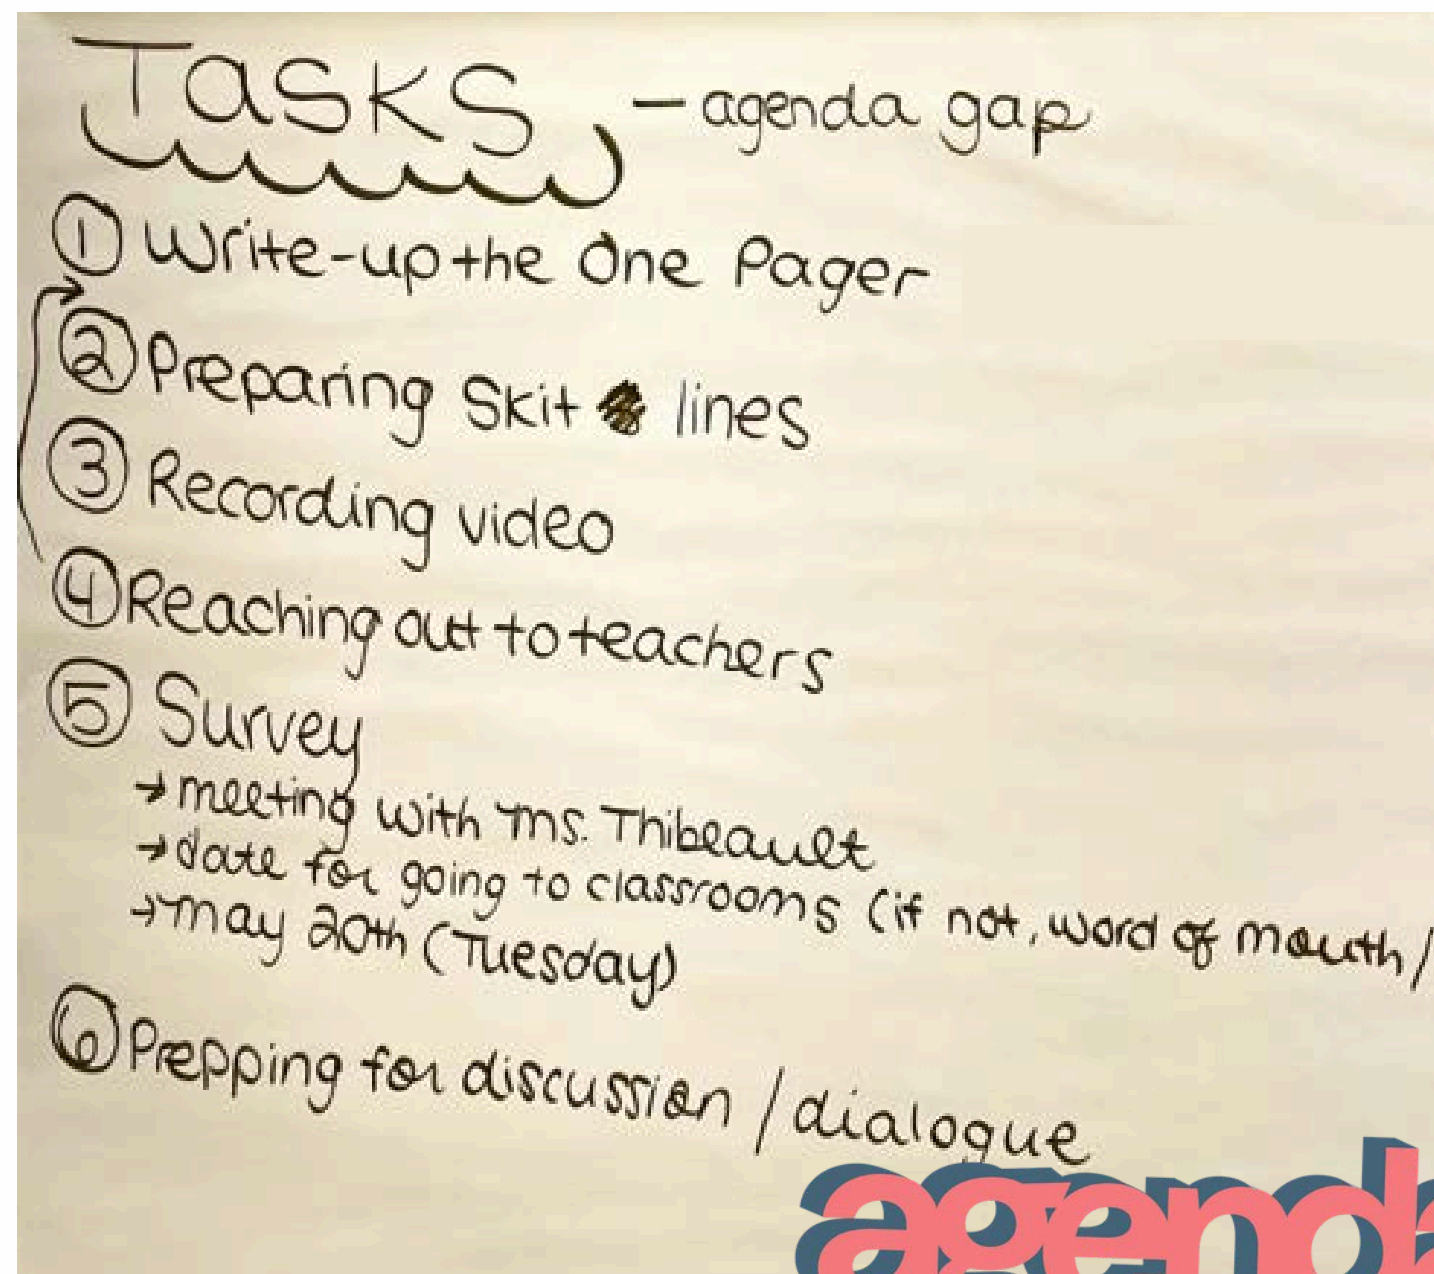 Tasks - agenda gap
① Write-up the One Pager
② Preparing Skit lines
③ Recording video
④ Reaching out to teachers
⑤ Survey
→ meeting with Ms. Thibeault
→ date for going to classrooms (if not, word of mouth/
→ may 20th (Tuesday)
⑥ Prepping for discussion / dialogue
agenda